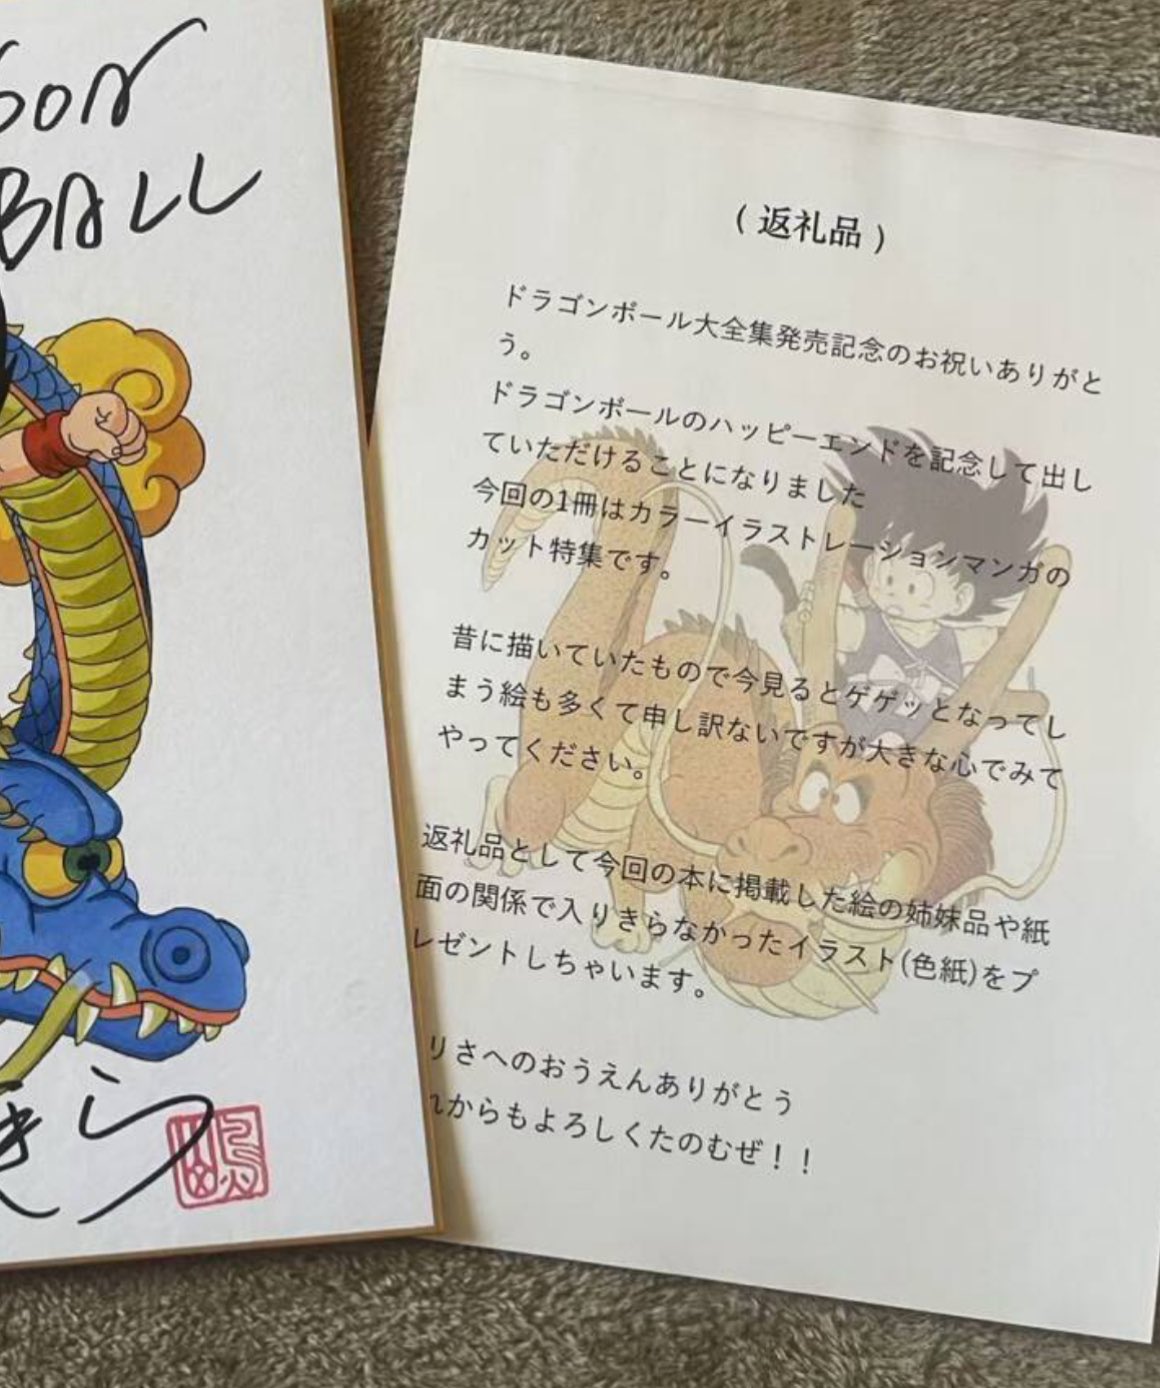 BALL
(返礼品)
ドラゴンボール大全集発売記念のお祝いありがと
う。
ドラゴンボールのハッピーエンドを記念して出し
ていただけることになりました
今回の1冊はカラーイラストレーションマンガの
カット特集です。
昔に描いていたもので今見るとゲゲッとなってし
まう絵も多くて申し訳ないですが大きな心でみて
やってください。
返礼品として今回の本に掲載した絵の姉妹品や紙
面の関係で入りきらなかったイラスト(色紙)をプ
レゼントしちゃいます。
りさへのおうえんありがとう
からもよろしくたのむぜ！！